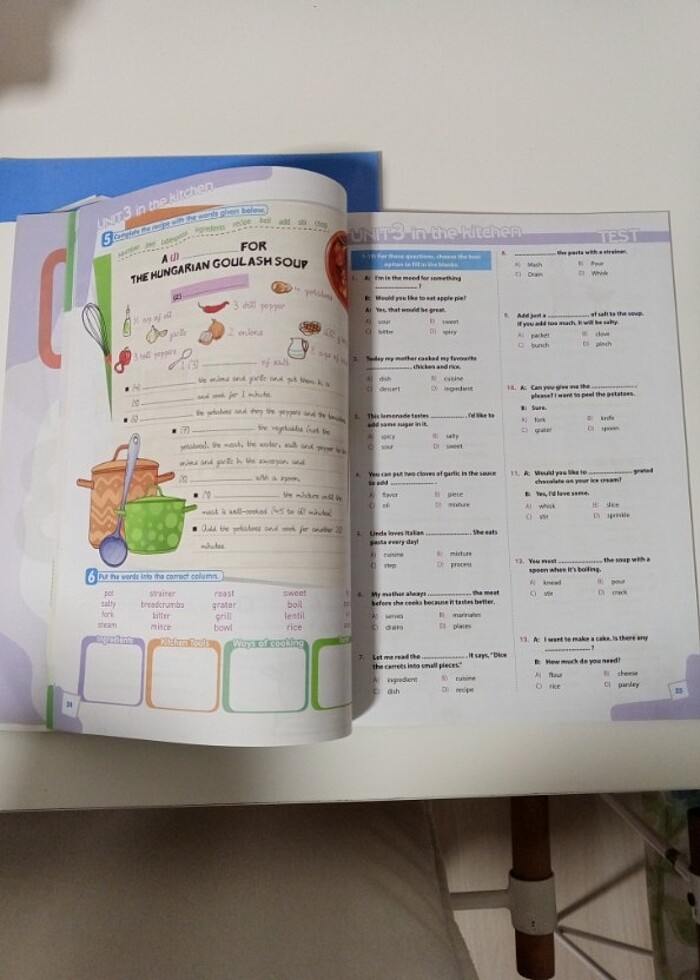 UNIT 3 in the kitchen
5 Complete the recipe with the words given below.
ingredients recipe boil add stir chop
A (1) ________ FOR
THE HUNGARIAN GOULASH SOUP
(2) ________
4 potatoes
3 chili pepper
garlic
2 onions
3 bell peppers
1 (3) ________ of salt
(4) ________ the onions and garlic and put them in a
(5) ________ and cook for 1 minute.
(6) ________ the potatoes and the peppers and the tomatoes
(7) ________ the vegetables (not the
potatoes), the meat, the water, salt and pepper to the
onions and garlic in the saucepan and
(8) ________ with a spoon.
(9) ________ the mixture until the
meat is well-cooked (45 to 60 minutes)
Add the potatoes and cook for another 20
minutes.
6 Put the words into the correct column.
pot strainer roast sweet
salty breadcrumbs grater boil
fork bitter grill lentil
steam mince bowl rice
Ingredients Kitchen Tools Ways of cooking
34
UNIT 3 in the kitchen TEST
1-13) For these questions, choose the best
option to fill in the blanks.
1. A: I'm in the mood for something
________?
B: Would you like to eat apple pie?
A: Yes, that would be great.
A) sour B) sweet
C) bitter D) spicy
2. Today my mother cooked my favourite
________, chicken and rice.
A) dish B) cuisine
C) dessert D) ingredient
3. This lemonade tastes ________. I'd like to
add some sugar in it.
A) spicy B) salty
C) sour D) sweet
4. You can put two cloves of garlic in the sauce
to add ________.
A) flavor B) piece
C) oil D) mixture
5. Linda loves Italian ________. She eats
pasta every day!
A) cuisine B) mixture
C) step D) process
6. My mother always ________ the meat
before she cooks because it tastes better.
A) serves B) marinates
C) drains D) places
7. Let me read the ________. It says, "Dice
the carrots into small pieces."
A) ingredient B) cuisine
C) dish D) recipe
8. ________ the pasta with a strainer.
A) Mash B) Pour
C) Drain D) Whisk
9. Add just a ________ of salt to the soup.
If you add too much, it will be salty.
A) packet B) clove
C) bunch D) pinch
10. A: Can you give me the ________,
please? I want to peel the potatoes.
B: Sure.
A) fork B) knife
C) grater D) spoon
11. A: Would you like to ________ grated
chocolate on your ice cream?
B: Yes, I'd love some.
A) whisk B) slice
C) stir D) sprinkle
12. You must ________ the soup with a
spoon when it's boiling.
A) knead B) pour
C) stir D) crack
13. A: I want to make a cake. Is there any
________?
B: How much do you need?
A) flour B) cheese
C) rice D) parsley
35